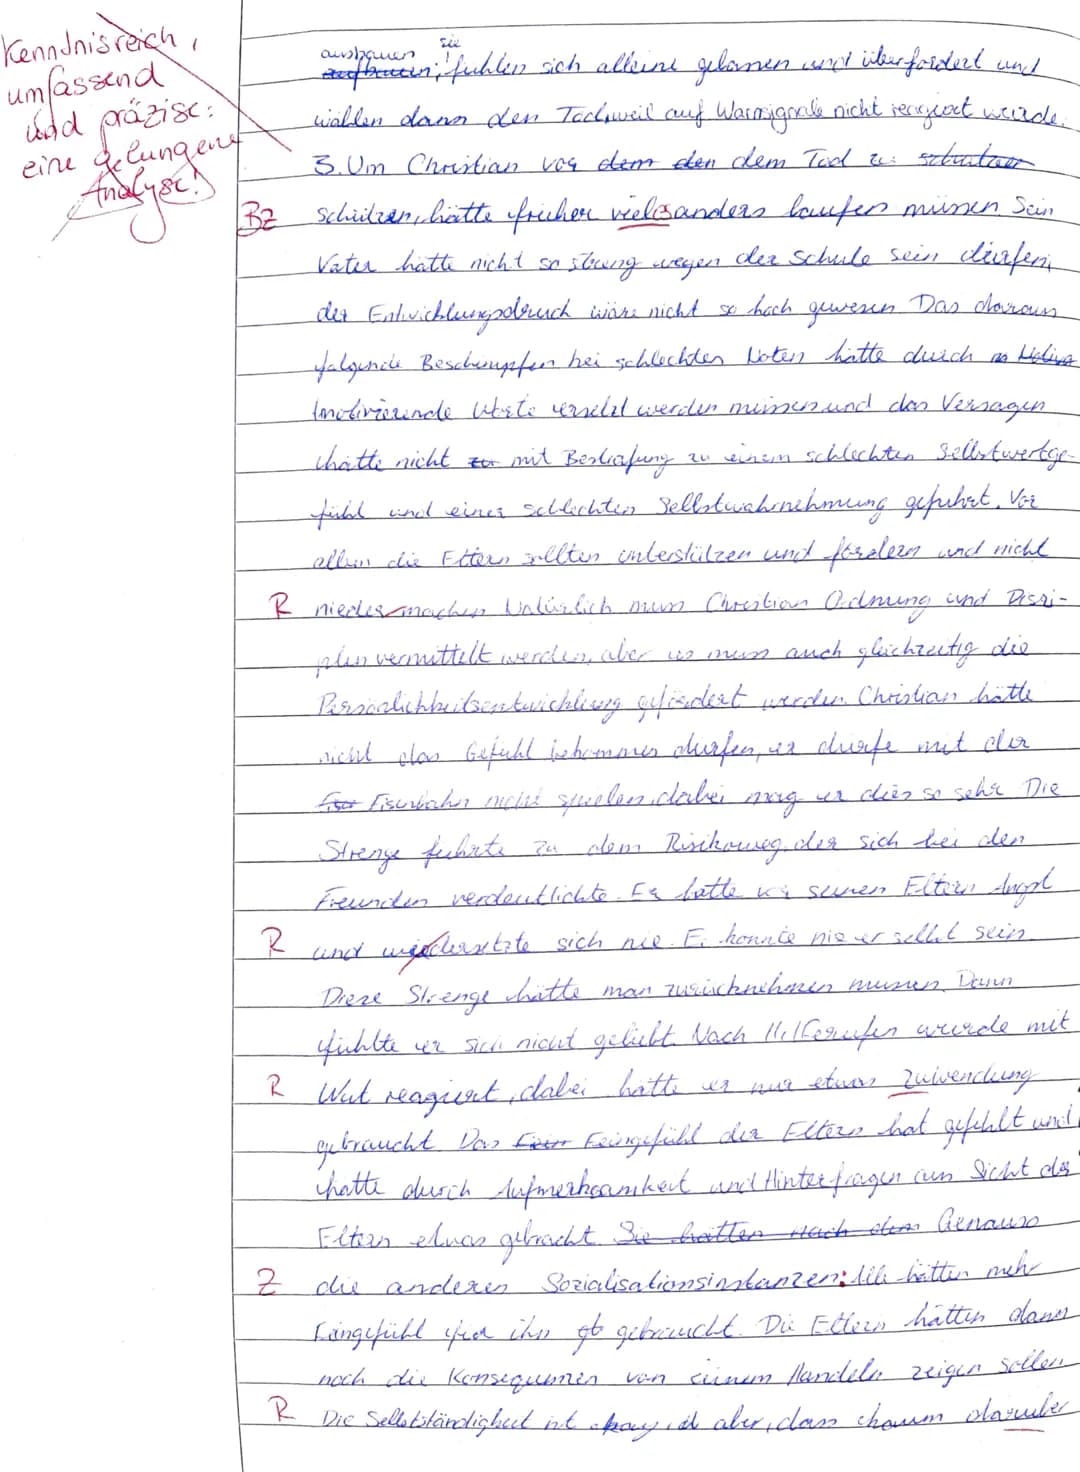 Kenntnisreich,
umfassend
und präzise:
eine gelungene
Analyse!
ausbauen, sie fühlen sich alleine gelassen und überfordert und
wählen dann den Tod, weil auf Warnsignale nicht reagiert wurde.
3. Um Christian vor dem den dem Tod zu schützen
Bz schützen, hätte früher vieles anders laufen müssen. Sein
Vater hätte nicht so streng wegen der Schule sein dürfen,
der Entwicklungsdruck wäre nicht so hoch gewesen. Das daraus
folgende Beschimpfen bei schlechten Noten hätte durch
motivierende Worte ersetzt werden müssen und das Versagen
hätte nicht zur mit Bestrafung zu einem schlechten Selbstwertge-
fühl und einer schlechten Selbstwahrnehmung geführt. Vor
allem die Eltern sollten unterstützen und fördern und nicht
R nieder machen. Natürlich muss Christian Ordnung und Diszi-
plin vermittelt werden, aber es muss auch gleichzeitig die
Persönlichkeitsentwicklung gefördert werden. Christian hätte
nicht das Gefühl bekommen dürfen, er dürfe mit der
Eisenbahn nicht spielen, dabei mag er dies so sehr. Die
Strenge führte zu dem Risikoweg, der sich bei den
Freunden verdeutlichte. Er hatte vor seinen Eltern Angst
R und wiedersetzte sich nie. Er konnte nie er selbst sein.
Diese Strenge hätte man zurücknehmen müssen. Dann
fühlte er sich nicht geliebt. Nach Hilferufen wurde mit
R Wut reagiert, dabei hätte er nur etwas Zuivendung
gebraucht. Das Feingefühl der Eltern hat gefehlt und
hätte durch Aufmerksamkeit und Hinterfragen aus Sicht der
Eltern etwas gebracht. Sie hätten nach dem Genauso
Z die anderen Sozialisationsinstanzen: Alle hätten mehr
Feingefühl für ihn gebraucht. Die Eltern hätten dann
noch die Konsequenzen von seinem Handeln zeigen sollen.
R Die Selbstständigkeit ist okay, ist aber, dass darüber